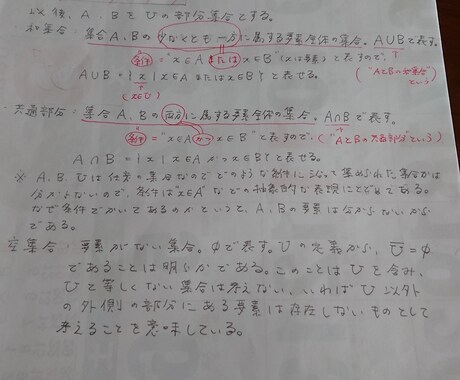 以後、A、BをUの部分集合とする。
和集合：集合A、Bの少なくとも一方に属する要素全体の集合。A∪Bで表す。
条件="x∈Aまたはx∈B"(xは要素)と表すので、
("AとBの和集合"という)
A∪B={x|x∈Aまたはx∈B}と表せる。
(x∈U)
共通部分：集合A、Bの両方に属する要素全体の集合。A∩Bで表す。
条件="x∈Aかつx∈B"と表すので、("AとBの共通部分"という)
A∩B={x|x∈Aかつx∈B}と表せる。
※A、B、Uは任意の集合なのでどのような条件によって集められた集合かは
分からないので、条件は"x∈A"などの抽象的な表現にとどめてある。
なぜ条件でかいてあるのかというと、A、Bの要素は分からないから
である。
空集合：要素がない集合。φで表す。Uの定義から、U̅=φ
であることは明らかである。このことはUを含み、
Uと等しくない集合は考えない、いわばU以外
の外側の部分にある要素は存在しないものとして
考えることを意味している。